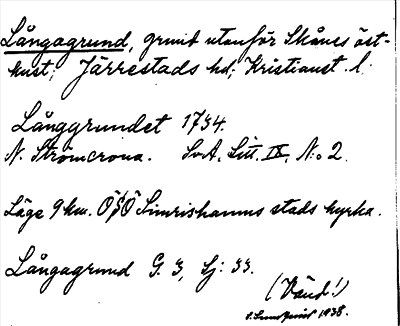 Långagrund, grund utanför Skånes öst-
kust; Järrestads hd; Kristianst. l.
Långgrundet 1734.
N. Strömcrona. SvA. Litt. IX. N:o 2.
Läge 9 km. ÖSÖ Simrishamns stads kyrka.
Långagrund G. 3, Sj: 33.
(Vänd!)
1938.